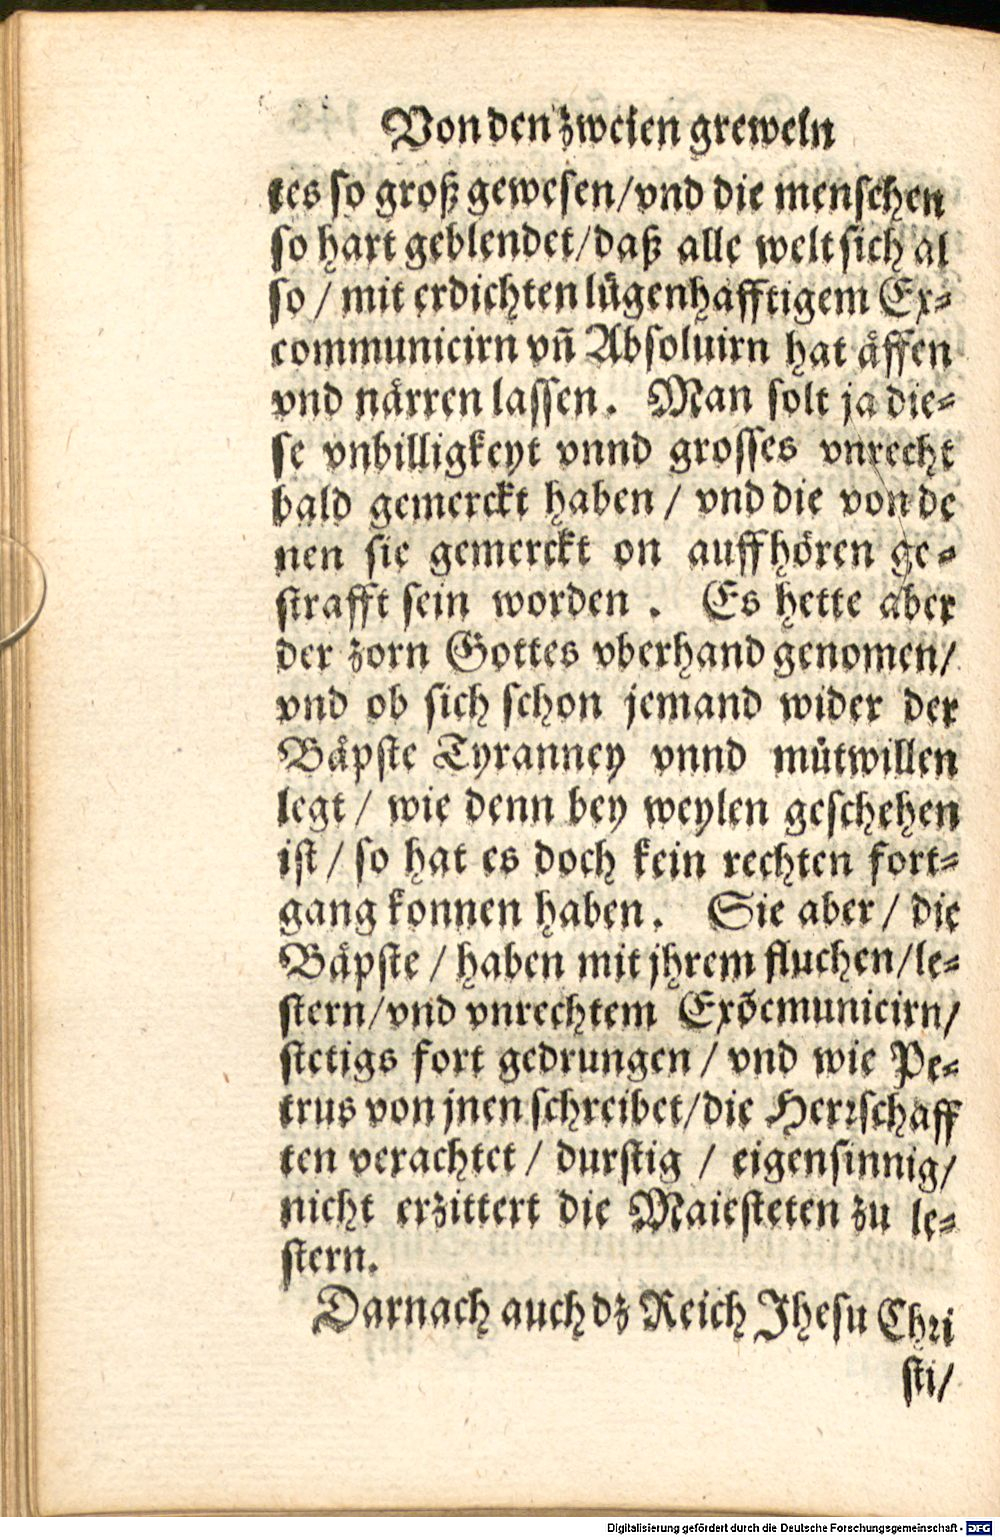 Von den zweien greweln
tes so groß gewesen/vnd die menschen
so hart geblendet/daß alle welt sich al
so / mit erdichten lügenhafftigem Ex-
communicirn vñ Absoluirn hat åffen
vnd nårren lassen. Man solt ja die-
se vnbilligkeyt vnnd grosses vnrecht
bald gemerckt haben / vnd die von de
nen sie gemerckt on auffhören ge-
strafft sein worden . Es hette aber
der zorn Gottes vberhand genomen/
vnd ob sich schon jemand wider der
Båpste Tyranney vnnd mütwillen
legt / wie denn bey weylen geschehen
ist / so hat es doch kein rechten fort-
gang konnen haben. Sie aber / die
Båpste / haben mit jhrem fluchen/le-
stern/vnd vnrechtem Exõcmunicirn/
stetigs fort gedrungen / vnd wie Pe-
trus von jnen schreibet/die Herrschaff
ten verachtet / durstig / eigensinnig/
nicht erzittert die Maiesteten zu le-
stern.
Darnach auch dz Reich Jhesu Chri
sti/
Digitalisierung gefördert durch die Deutsche Forschungsgemeinschaft - DFG